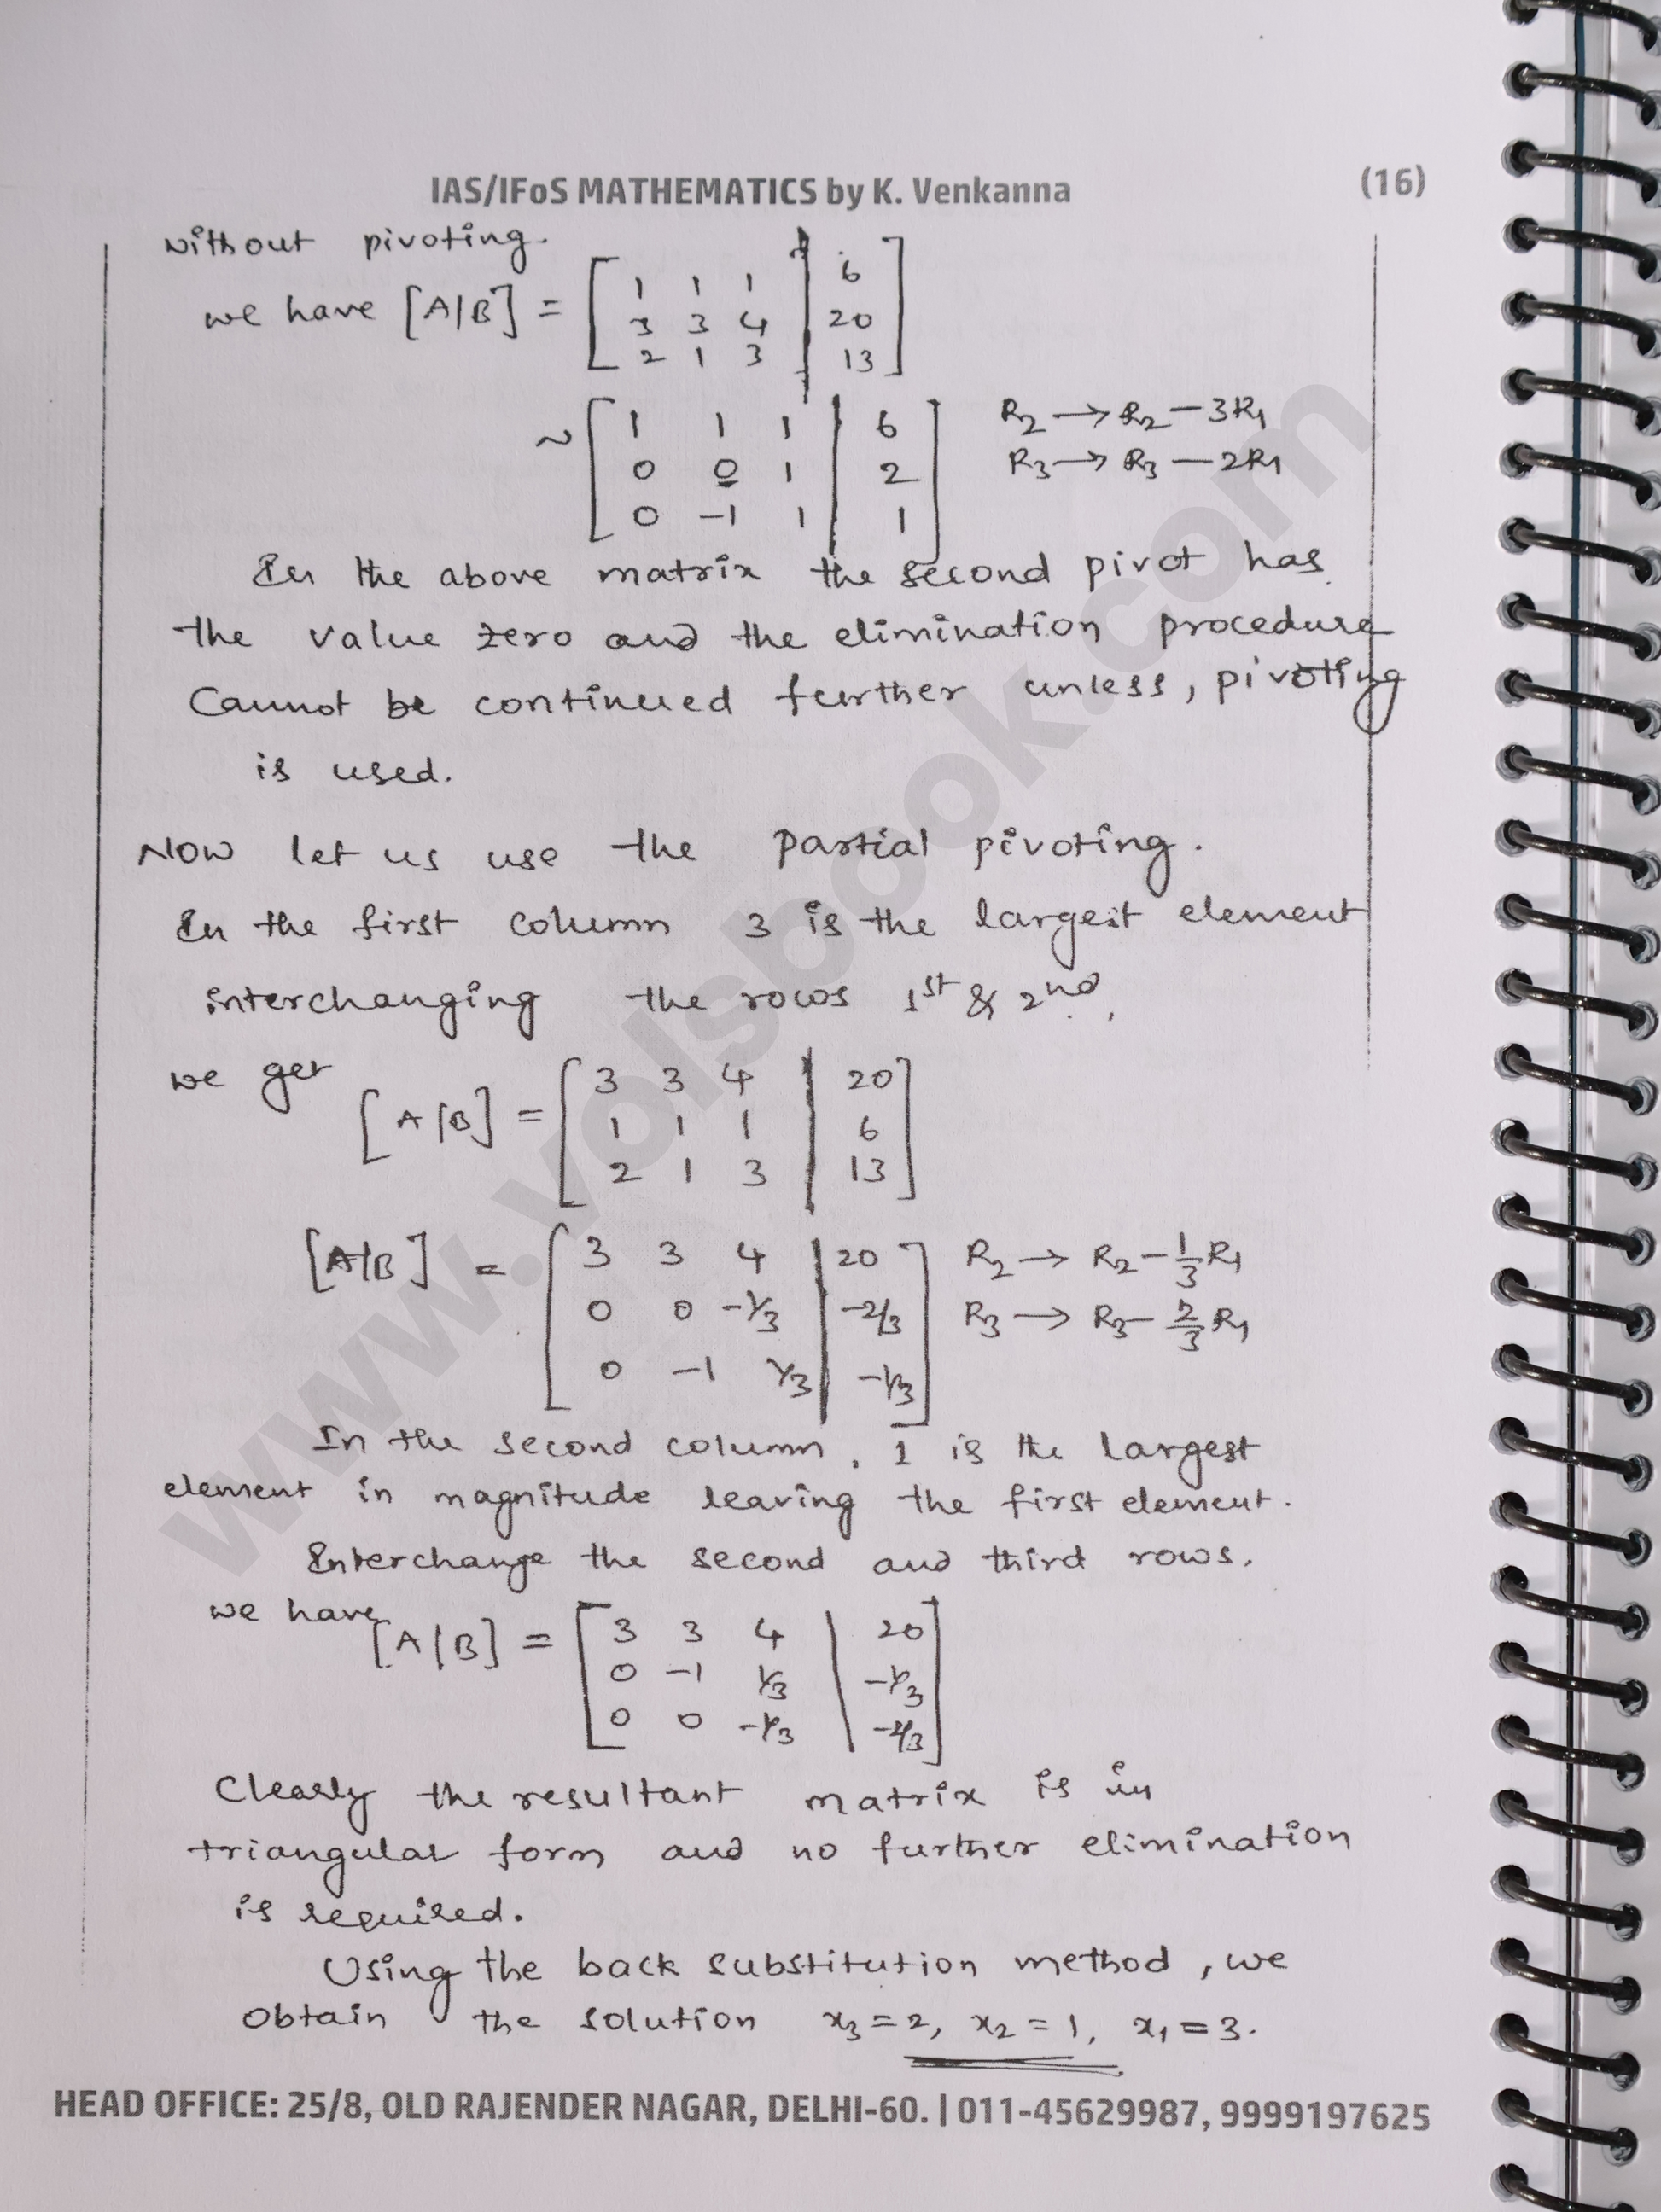 IAS/IFoS MATHEMATICS by K. Venkanna (16)
without pivoting.
we have [A/B] = [ 1 1 1 | 6
3 3 4 | 20
2 1 3 | 13 ]
~ [ 1 1 1 | 6 R2 → R2 - 3R1
0 0 1 | 2 R3 → R3 - 2R1
0 -1 1 | 1 ]
In the above matrix the second pivot has
the value zero and the elimination procedure
cannot be continued further unless, pivoting
is used.
Now let us use the partial pivoting.
In the first column 3 is the largest element
interchanging the rows 1st & 2nd,
we get
[A/B] = [ 3 3 4 | 20
1 1 1 | 6
2 1 3 | 13 ]
[A/B] = [ 3 3 4 | 20 R2 → R2 - 1/3 R1
0 0 -1/3 | -2/3 R3 → R3 - 2/3 R1
0 -1 1/3 | -1/3 ]
In the second column, 1 is the largest
element in magnitude leaving the first element.
Interchange the second and third rows.
we have
[A/B] = [ 3 3 4 | 20
0 -1 1/3 | -1/3
0 0 -1/3 | -2/3 ]
Clearly the resultant matrix is in
triangular form and no further elimination
is required.
Using the back substitution method, we
obtain the solution x3 = 2, x2 = 1, x1 = 3.
HEAD OFFICE: 25/8, OLD RAJENDER NAGAR, DELHI-60. | 011-45629987, 9999197625
www.volsbook.com